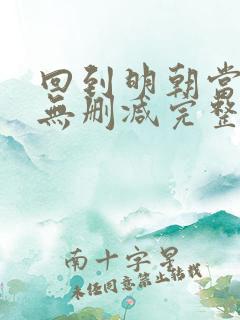 回到明朝當
無删减完整
南十字星
未经同意禁止转载